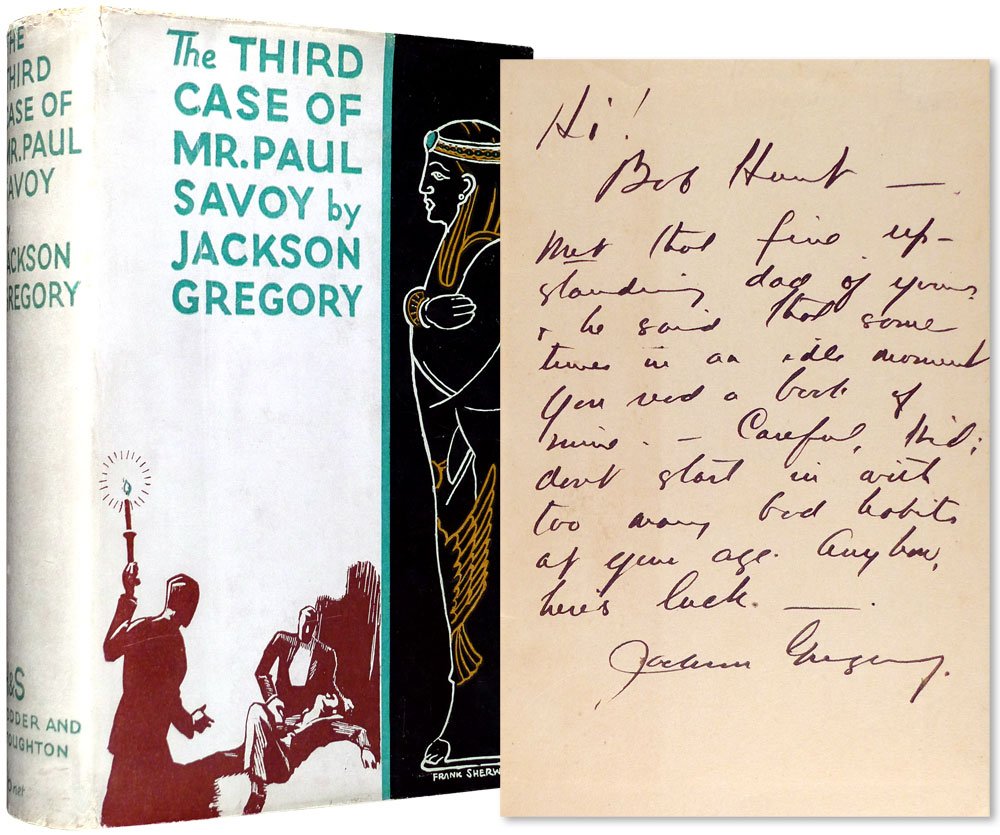 THE
THIRD
CASE OF
MR. PAUL
SAVOY
BY
JACKSON
GREGORY
H&S
HODDER AND
STOUGHTON
net
The THIRD
CASE OF
MR. PAUL
SAVOY by
JACKSON
GREGORY
FRANK SHERW
Hi!
Bob Hunt —
Met that fine up-
standing dad of yours
& he said that some
times in an idle moment
you read a book of
mine. — Careful, Kid;
dont start in with
too many bad habits
at your age. Anyhow,
here's luck. —.
Jackson Gregory.